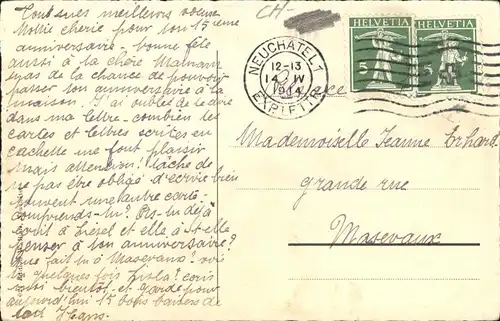 Tout mes meilleurs voeux
Mollie chérie pour ton 15 ième
anniversaire, bonne fête
aussi à la chère Maman
as de la chance de pouvoir
passer ton anniversaire à la
maison. J'ai oublié de te dire
dans ma lettre combien tes
cartes et lettres écrites en
cachette me font plaisir
mais attention! tâche de
ne pas être obligé d'écrire bien
souvent une autre carte
comprends-tu? As-tu déjà
écrit à Liesel et elle a-t-elle
penser à ton anniversaire?
Que fait tu à Masevaux?
quelques fois écris
aussi bientôt et garde pour
aujourd'hui 15 bons baisers de
ton Hans.
CH-
NEUCHATEL 1
12-13
14 IV
1914
EXP. LETTR.
HELVETIA
5
HELVETIA
5
Mademoiselle Jeanne Erhard
grande rue
Masevaux